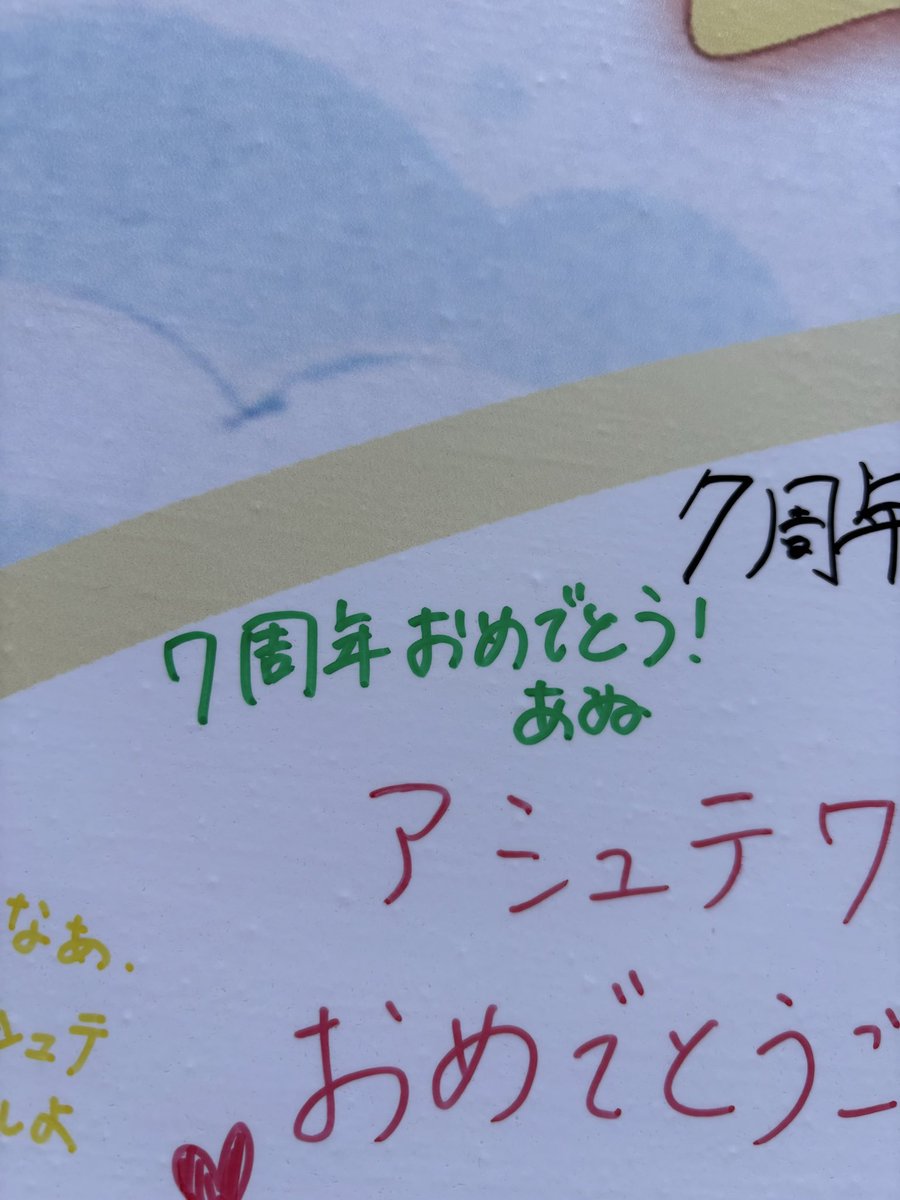 7周年
7周年おめでとう!
あぬ
アシュテワ
おめでとうご
なあ.
シュテ
しよ